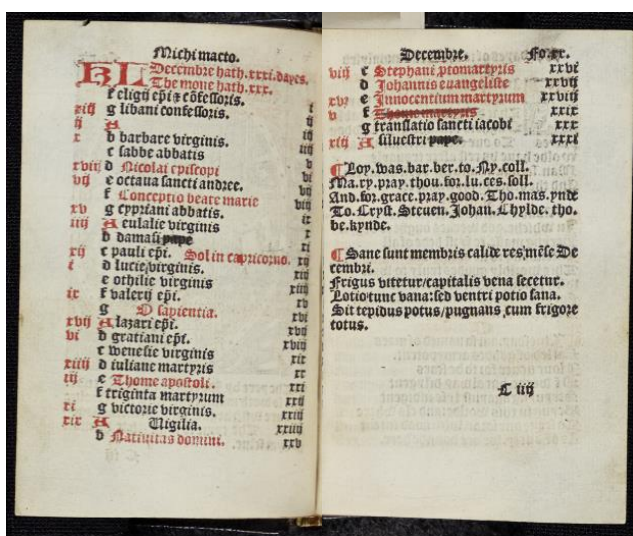 Michi macto.
KL Decembre hath .xxxi. dayes.
The mone hath .xxx.
f eligii epi ⁊ cōfessoris. i
xiij g libani confessoris. ij
ij A iij
x b barbare virginis. iiij
c sabbe abbatis v
xviij d Nicolai episcopi vi
vij e octava sancti andree. vij
f Conceptio beate marie viij
xv g cypriani abbatis. ix
iiij A eulalie virginis x
b damasi pape xi
xij c pauli epi. Sol in capricorno. xij
i d lucie virginis. xiij
e othilie virginis xiiij
ix f valerij epi. xv
g O sapientia. xvi
xvij A lazari epi. xvij
vi b gratiani epi. xviij
c wenesie virginis xix
xiiij d iuliane martyris xx
iij e Thome apostoli. xxi
f triginta martyrum xxij
xi g victorie virginis. xxiij
xix A Vigilia. xxiiij
b Nativitas domini. xxv
Decembre. Fo.xx.
viij c Stephani ptomartyris xxvi
d Johannis euangeliste xxvij
xvi e Innocentium martyrum xxviij
v f Thome martyris xxix
g translatio sancti iacobi xxx
xiij A siluestri pape. xxxi
¶ Loy.was.bar.ber.to.Ny.coll.
Ma.ry.pray.thou.for.lu.ces.soll.
And.for.grace.pray.good.Tho.mas.ynde
To.Cryst.Steuen.Johan.Chylde.tho.
be.kynde.
¶ Sane sunt membris calide res mēse De
cembri.
Frigus vitetur/capitalis vena secetur.
Lotio tunc vana: sed ventri potio sana.
Sit tepidus potus/pugnans cum frigore
totus.
C iiij